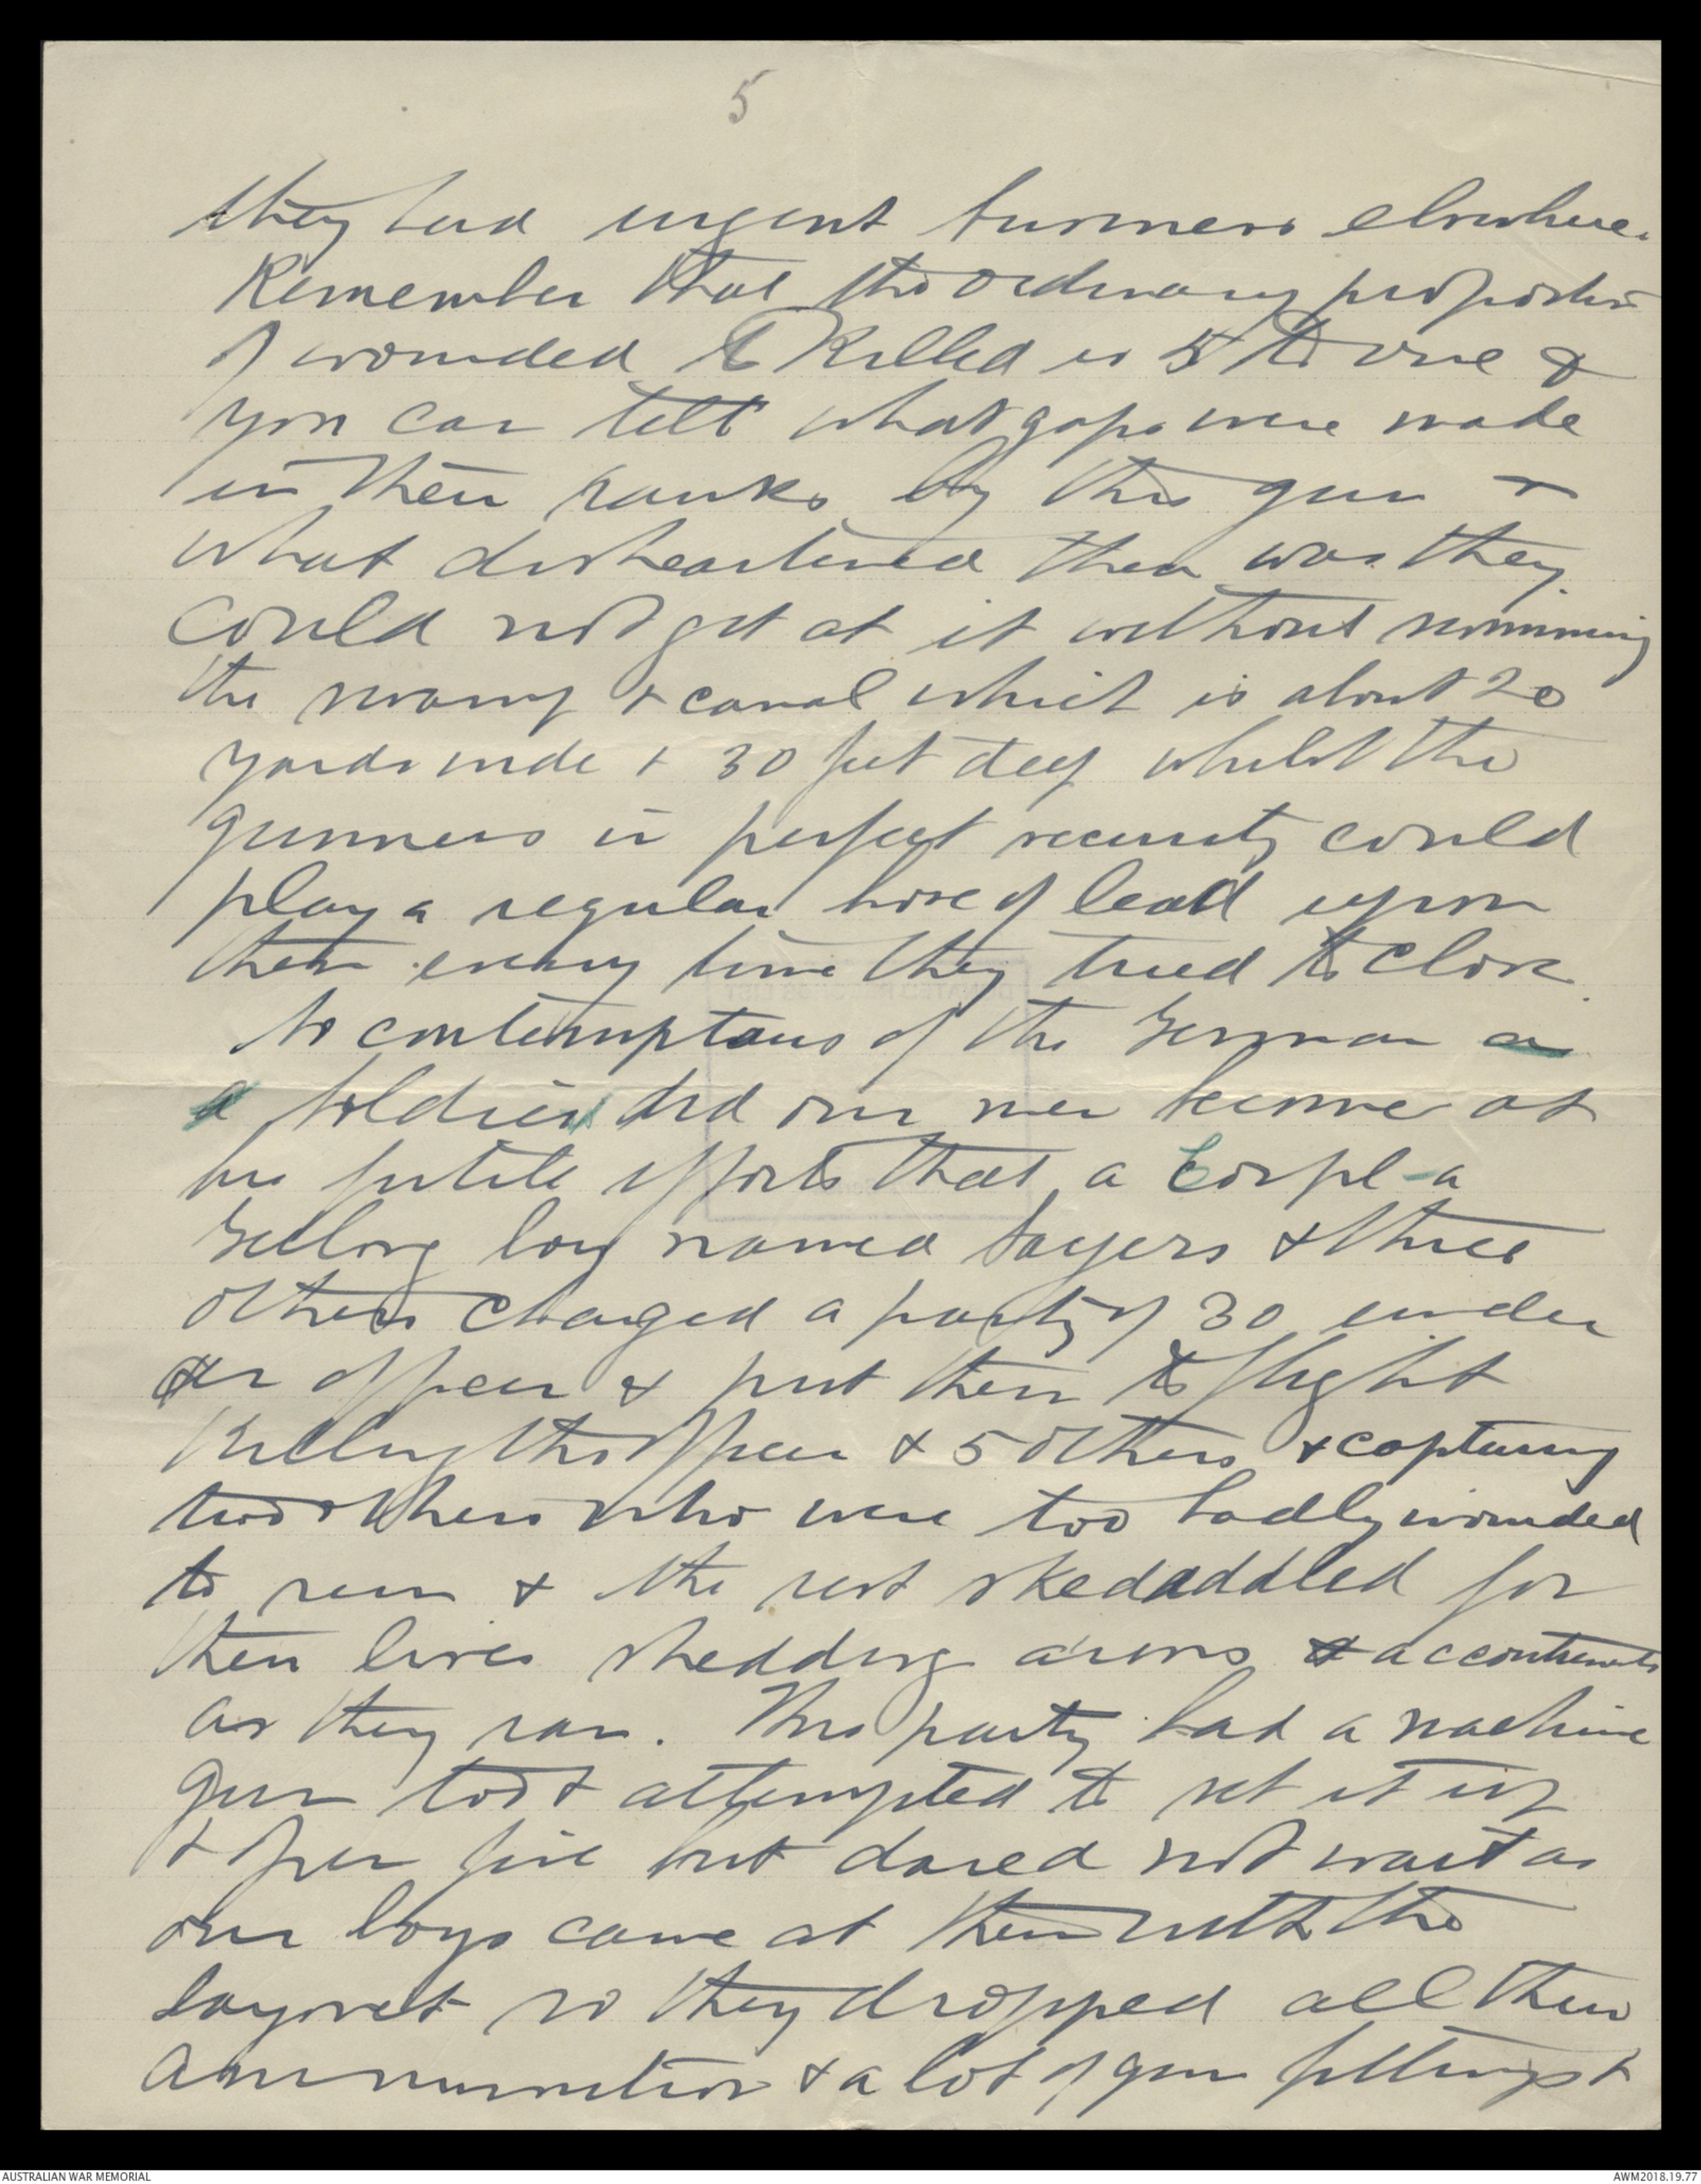 5
they had urgent business elsewhere.
Remember that the ordinary proportion
of wounded to killed is 5 to one &
you can tell what gaps were made
in their ranks by this gun +
what disheartened them was they
could not get at it without swimming
the swamp + canal which is about 20
yards wide + 30 feet deep whilst the
gunners in perfect security could
play a regular hose of lead upon
them every time they tried to close.
So contemptous of the German as
a soldier did our men become at
his futile efforts that a Corpl - a
Geelong boy named Sayers & three
others charged a party of 30 under
an officer & put them to flight
killing the officer & 5 others & capturing
two others who were too badly wounded
to run & the rest skedaddled for
their lives shedding arms & accoutrements
as they ran. This party had a machine
gun too & attempted to set it up
& open fire but dared not wait as
our boys came at them with the
bayonet so they dropped all their
ammunition & a lot of gun fittings &
AUSTRALIAN WAR MEMORIAL
AWM2018.19.77